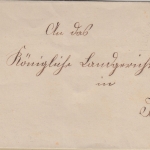 An das
Königliche Landgericht
in